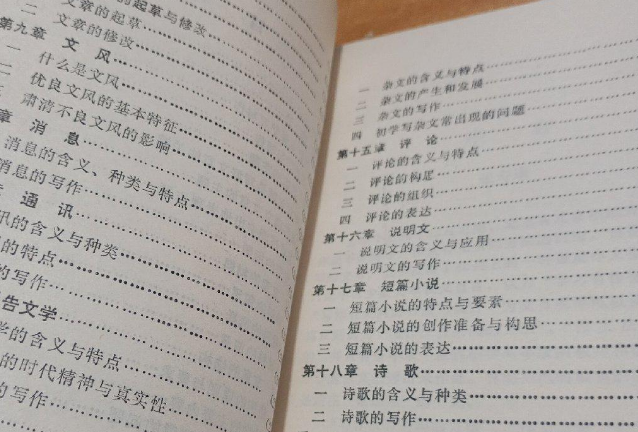 的起草与修改
一 文章的起草
二 文章的修改
第九章 文 风
一 什么是文风
二 优良文风的基本特征
三 肃清不良文风的影响
章 消 息
消息的含义、种类与特点
消息的写作
通 讯
讯的含义与种类
的特点
的写作
告文学
学的含义与特点
的时代精神与真实性
的写作
一 杂文的含义与特点
二 杂文的产生和发展
三 杂文的写作
四 初学写杂文常出现的问题
第十五章 评 论
一 评论的含义与特点
二 评论的构思
三 评论的组织
四 评论的表达
第十六章 说明文
一 说明文的含义与应用
二 说明文的写作
第十七章 短篇小说
一 短篇小说的特点与要素
二 短篇小说的创作准备与构思
三 短篇小说的表达
第十八章 诗 歌
一 诗歌的含义与种类
二 诗歌的写作